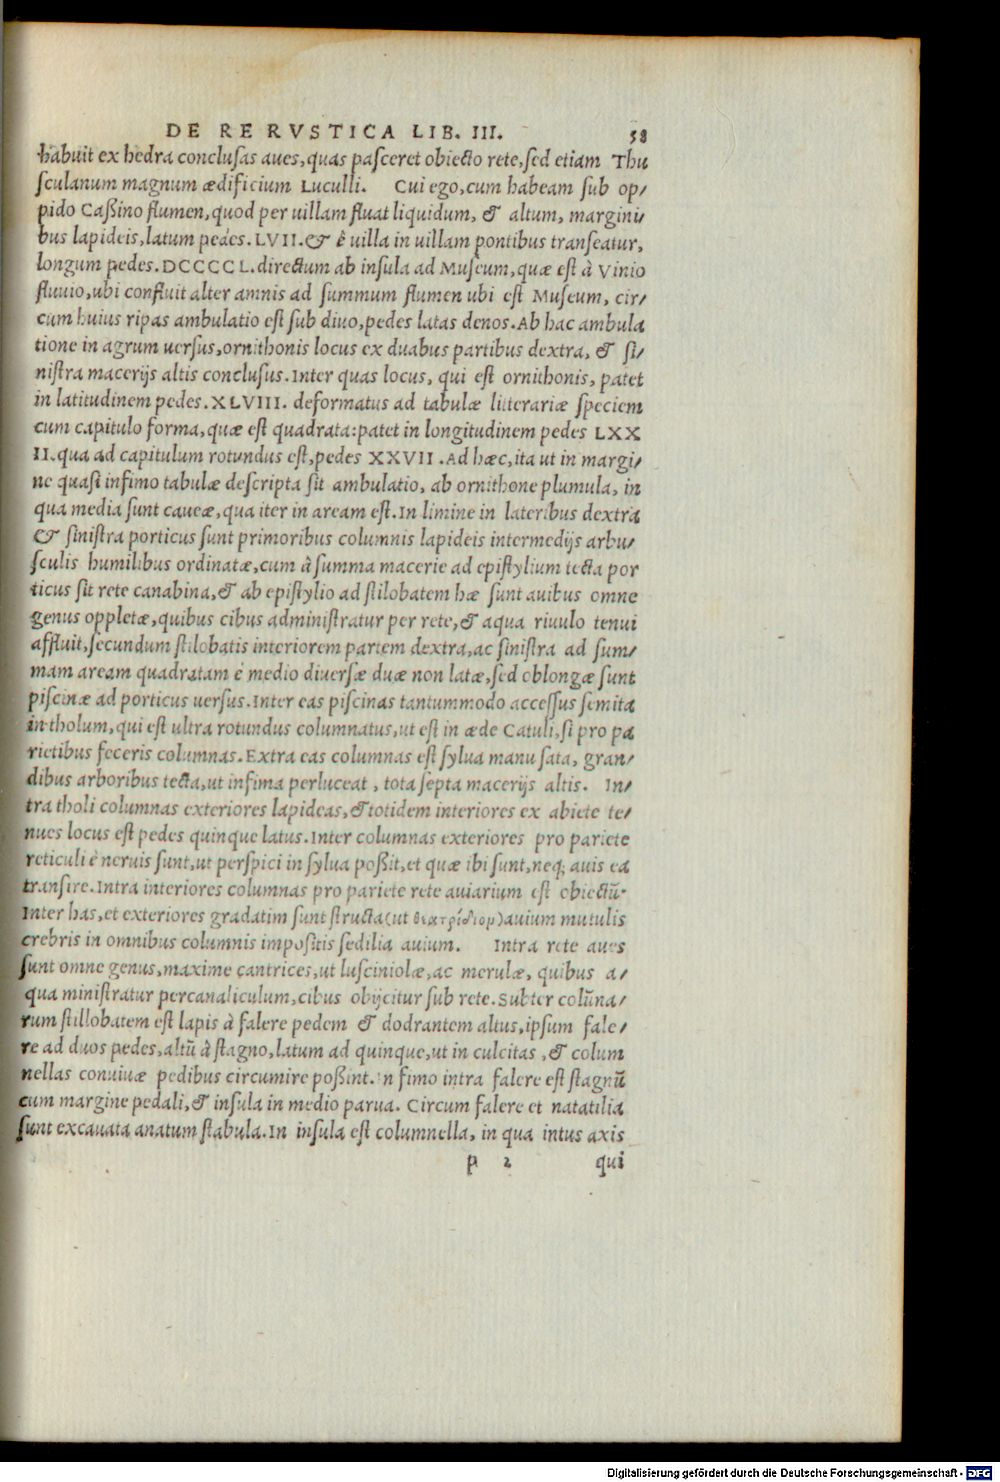 DE RE RVSTICA LIB. III. 58
habuit ex hedra conclusas aues, quas pasceret obiecto rete, sed etiam Thu
sculanum magnum ædificium Luculli. Cui ego, cum habeam sub op/
pido Caßino flumen, quod per uillam fluat liquidum, & altum, margini/
bus lapideis, latum pedes. LVII. & è uilla in uillam pontibus transeatur,
longum pedes. DCCCCL. directum ab insula ad Museum, quæ est à Vinio
fluuio, ubi confluit alter amnis ad summum flumen ubi est Museum, cir/
cum huius ripas ambulatio est sub diuo, pedes latas denos. Ab hac ambula
tione in agrum uersus, ornithonis locus ex duabus partibus dextra, & si/
nistra macerijs altis conclusus. Inter quas locus, qui est ornithonis, patet
in latitudinem pedes. XLVIII. deformatus ad tabulæ litterariæ speciem
cum capitulo forma, quæ est quadrata: patet in longitudinem pedes LXX
II. qua ad capitulum rotundus est, pedes XXVII. Ad hæc, ita ut in margi/
ne quasi infimo tabulæ descripta sit ambulatio, ab ornithone plumula, in
qua media sunt caueæ, qua iter in aream est. In limine in lateribus dextra
& sinistra porticus sunt primoribus columnis lapideis intermedijs arbu/
sculis humilibus ordinatæ, cum à summa macerie ad epistylium tecta por
ticus sit rete canabina, & ab epistylio ad stilobatem hæ sunt auibus omne
genus oppletæ, quibus cibus administratur per rete, & aqua riuulo tenui
affluit, secundum stilobatis interiorem partem dextra, ac sinistra ad sum/
mam aream quadratam è medio diuersæ duæ non latæ, sed oblongæ sunt
piscinæ ad porticus uersus. Inter eas piscinas tantummodo accessus semita
in tholum, qui est ultra rotundus columnatus, ut est in æde Catuli, si pro pa
rietibus feceris columnas. Extra eas columnas est sylua manu sata, gran/
dibus arboribus tecta, ut infima perluceat, tota septa macerijs altis. In/
tra tholi columnas exteriores lapideas, & totidem interiores ex abiete te/
nues locus est pedes quinque latus. Inter columnas exteriores pro pariete
reticuli è neruis sunt, ut perspici in sylua poßit, et quæ ibi sunt, neq; auis ea
transire. Intra interiores columnas pro pariete rete auiarium est obiectũ.
Inter has, et exteriores gradatim sunt structa (ut θεατρίδιον) auium mutulis
crebris in omnibus columnis impositis sedilia auium. Intra rete aues
sunt omne genus, maxime cantrices, ut lusciniolæ, ac merulæ, quibus a/
qua ministratur per canaliculum, cibus obijcitur sub rete. Subter colũna/
rum stillobatem est lapis à falere pedem & dodrantem altus, ipsum fale/
re ad duos pedes, altũ à stagno, latum ad quinque, ut in culcitas, & colum
nellas conuiuæ pedibus circumire poßint. In fimo intra falere est stagnũ
cum margine pedali, & insula in medio parua. Circum falere et natatilia
sunt excauata anatum stabula. In insula est columnella, in qua intus axis
p 2 qui
Digitalisierung gefördert durch die Deutsche Forschungsgemeinschaft - DFG